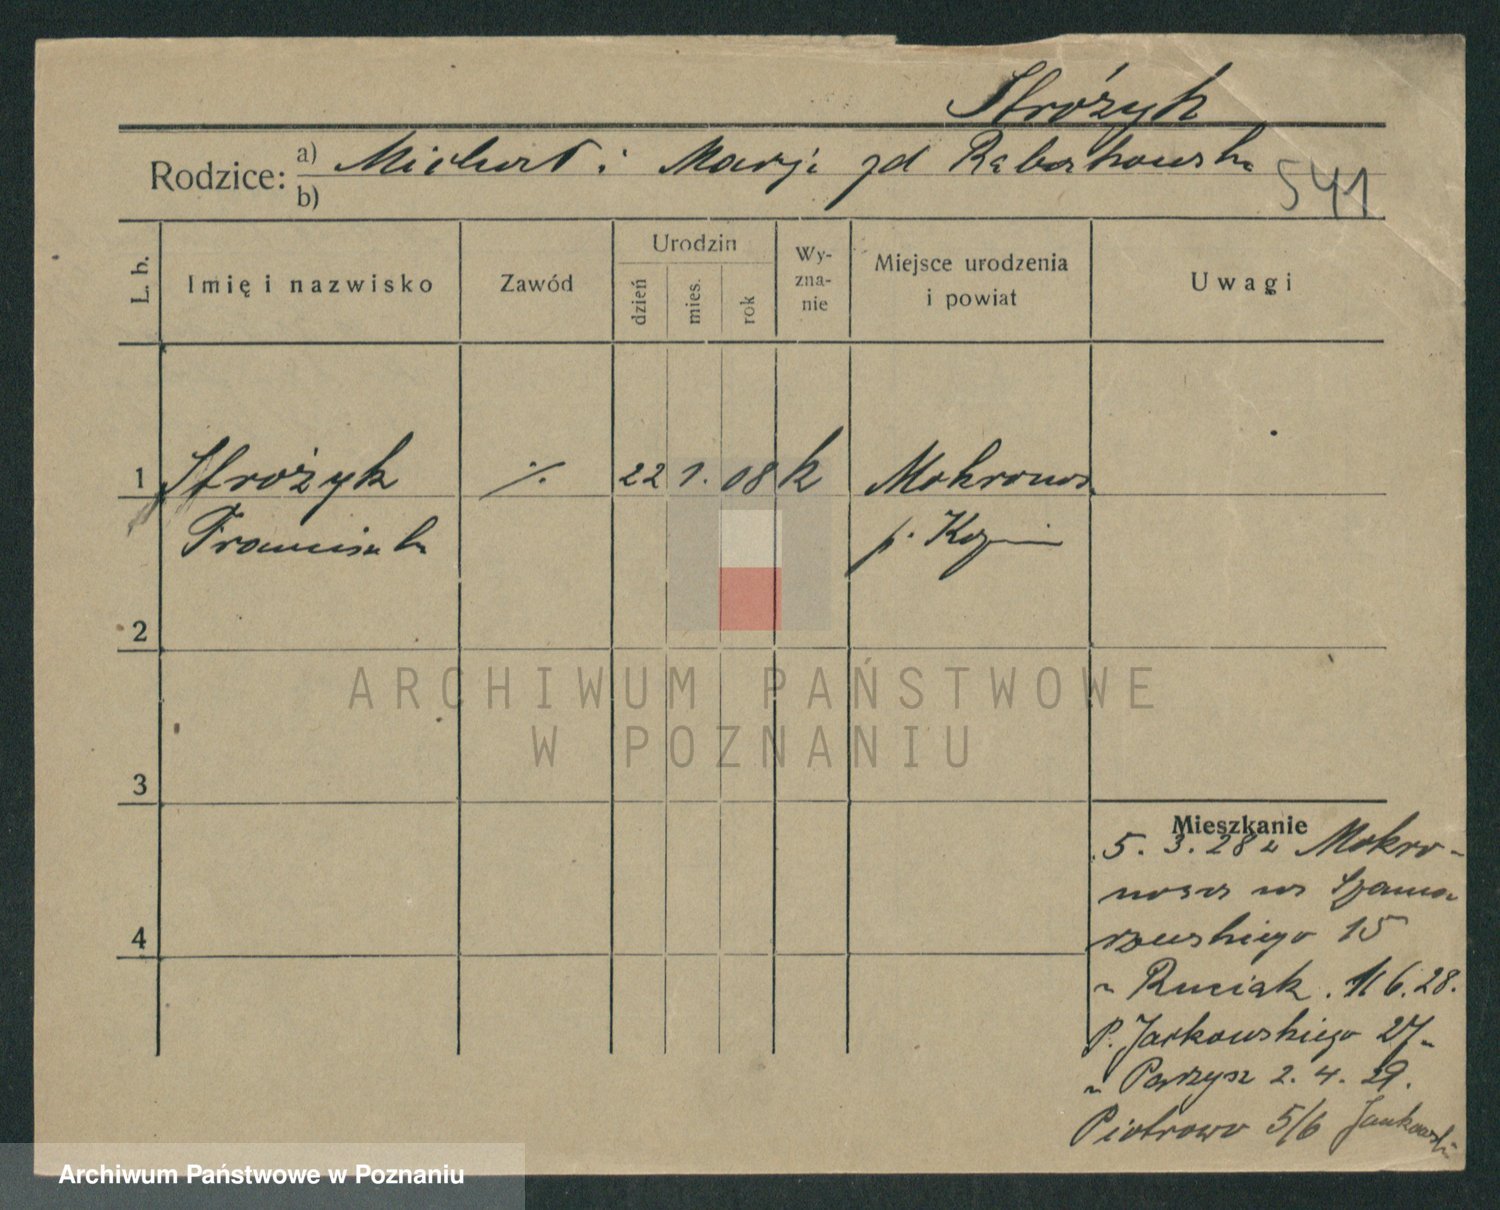 Stróżyk
Rodzice: a) Michał i Marja zd
b)
541
L. b.
Imię i nazwisko
Zawód
Urodzin
dzień
mies.
rok
Wy-
zna-
nie
Miejsce urodzenia
i powiat
Uwagi
1 Stróżyk ./. 22 1. 08 k Mokronos
Franciszka p. Koźmin
2
3
4
ARCHIWUM PAŃSTWOWE
W POZNANIU
Mieszkanie
5. 3. 28 z Mokro-
nosa
15
u Ruciak. 1 6. 28.
P. Jackowskiego 27
u Parzysz 2. 4. 29.
Piotrowo 5/6 Jankowski
Archiwum Państwowe w Poznaniu